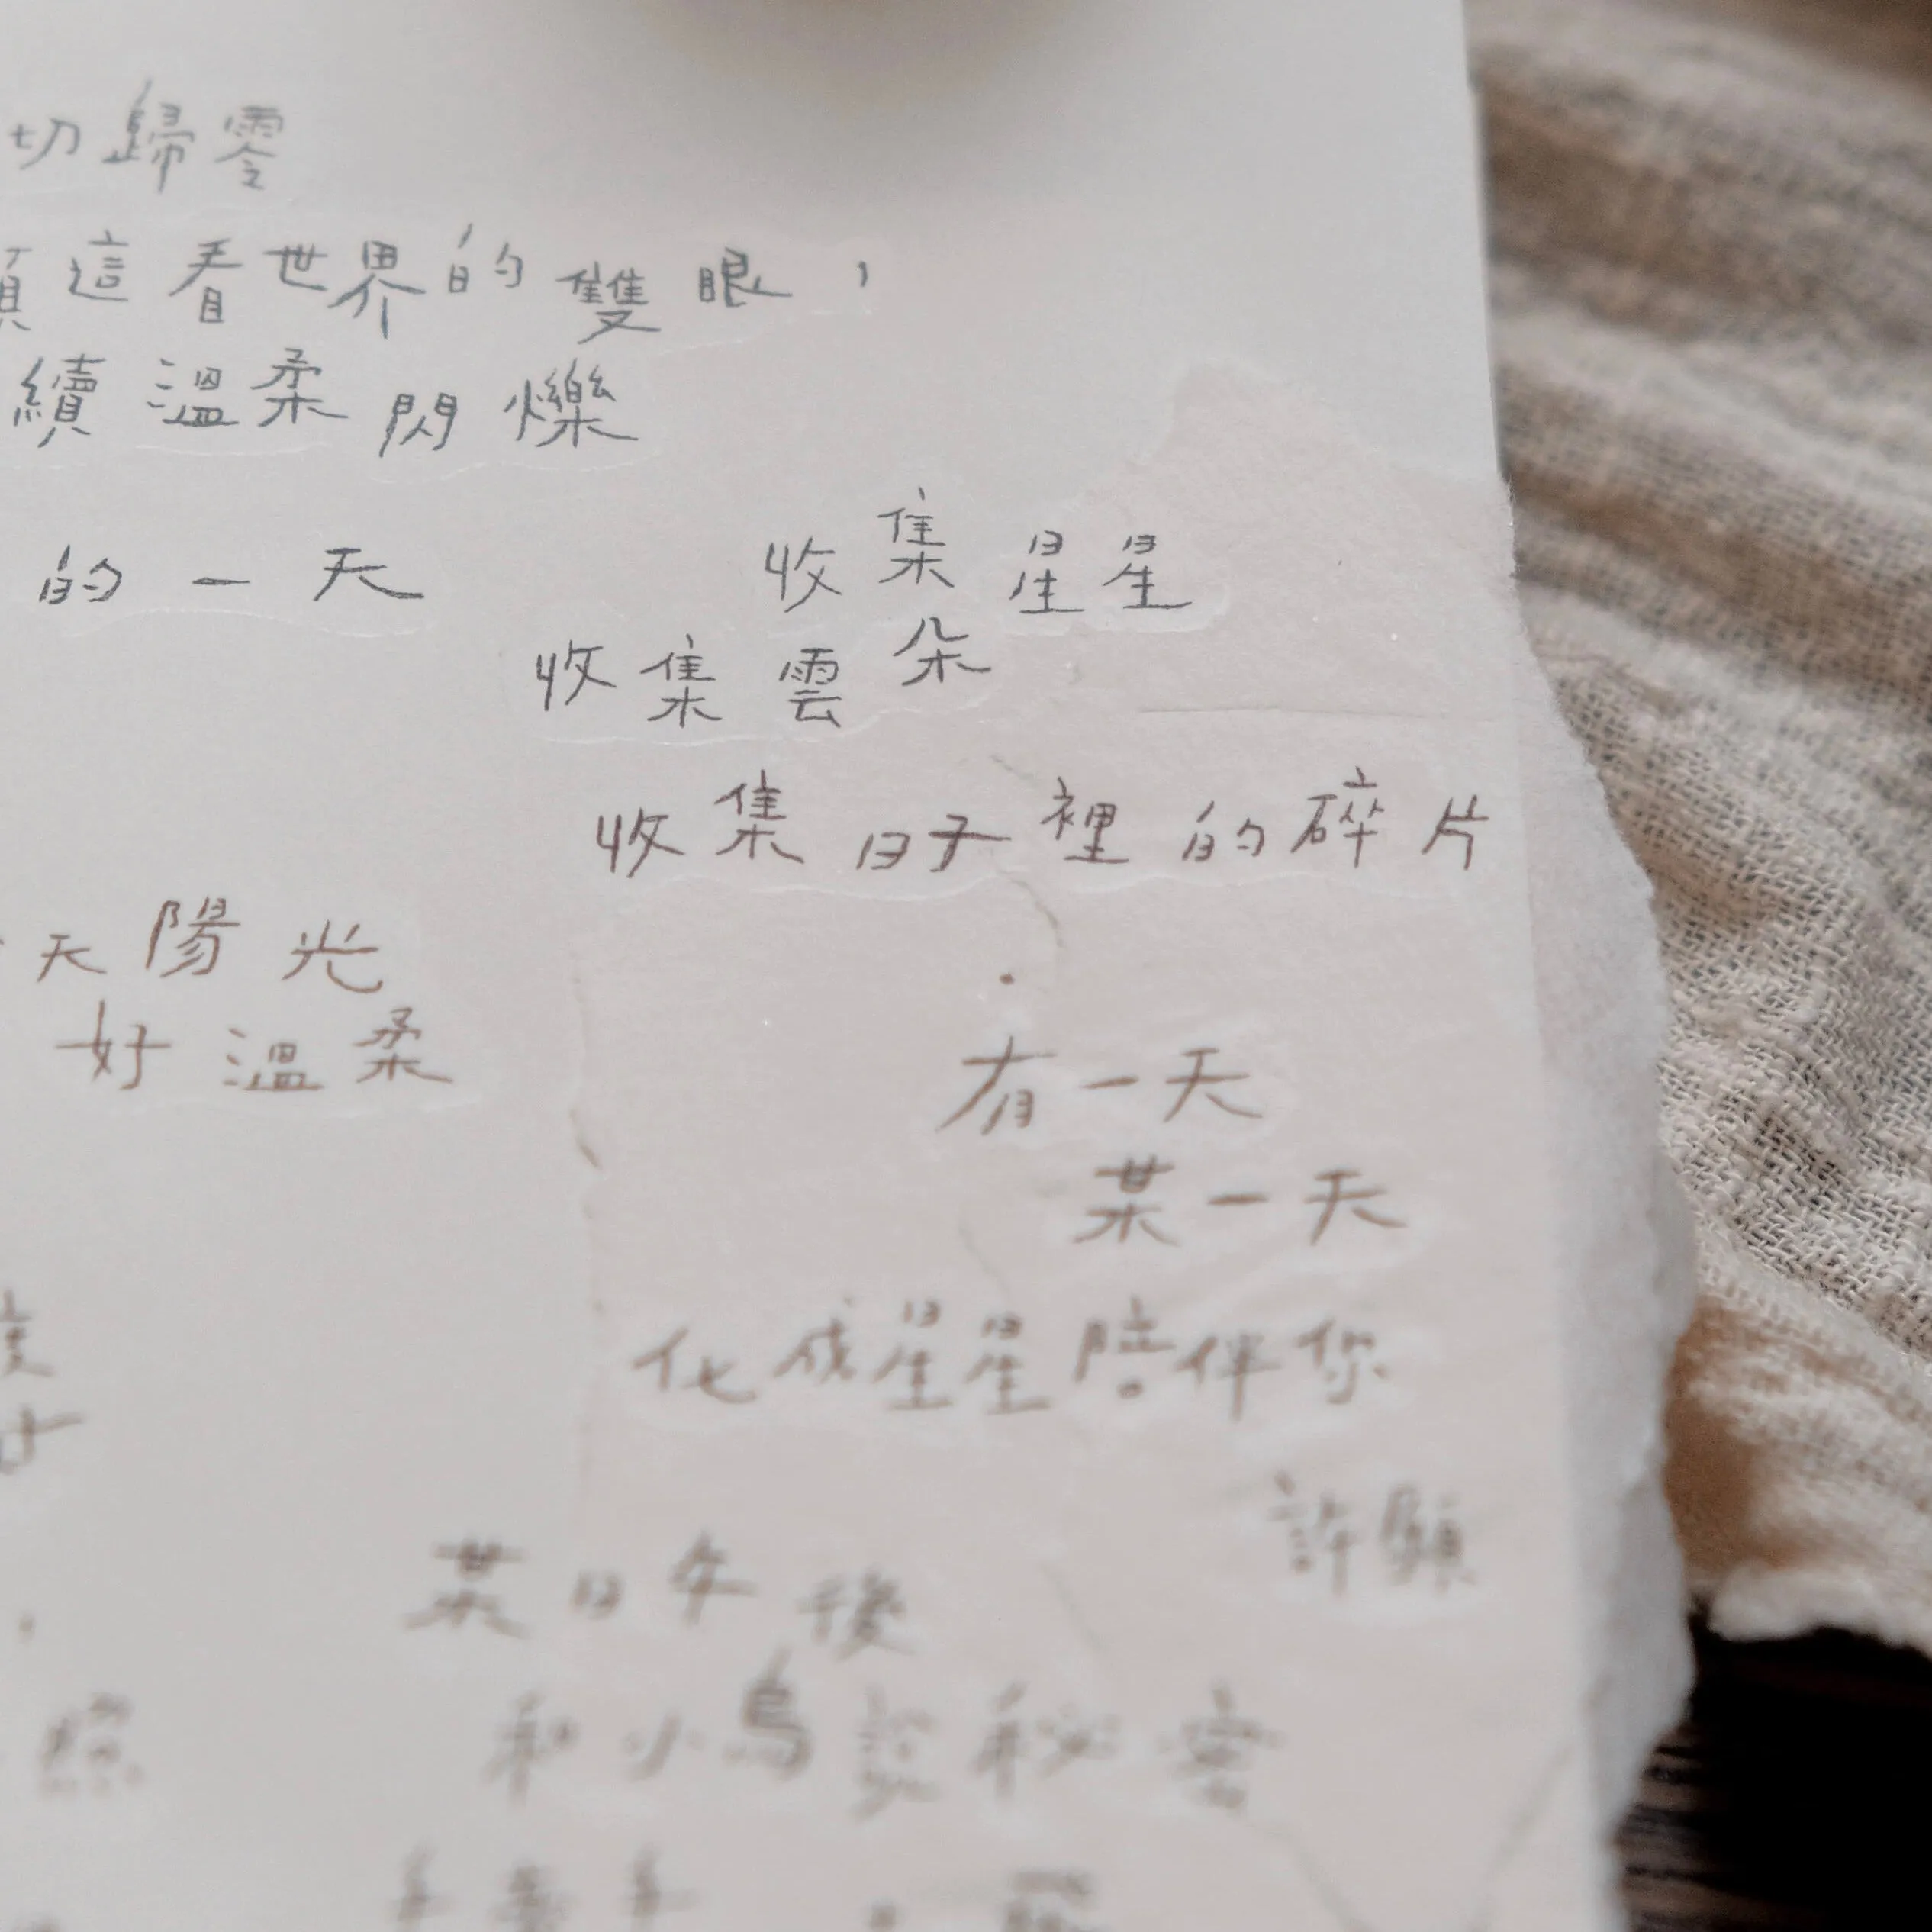 切歸零
這看世界的雙眼，
續溫柔閃爍
的一天
收集星星
收集雲朵
收集日子裡的碎片
天陽光
好溫柔
有一天
某一天
化成星星陪伴你
許願
某日午後
和小鳥說秘密
照